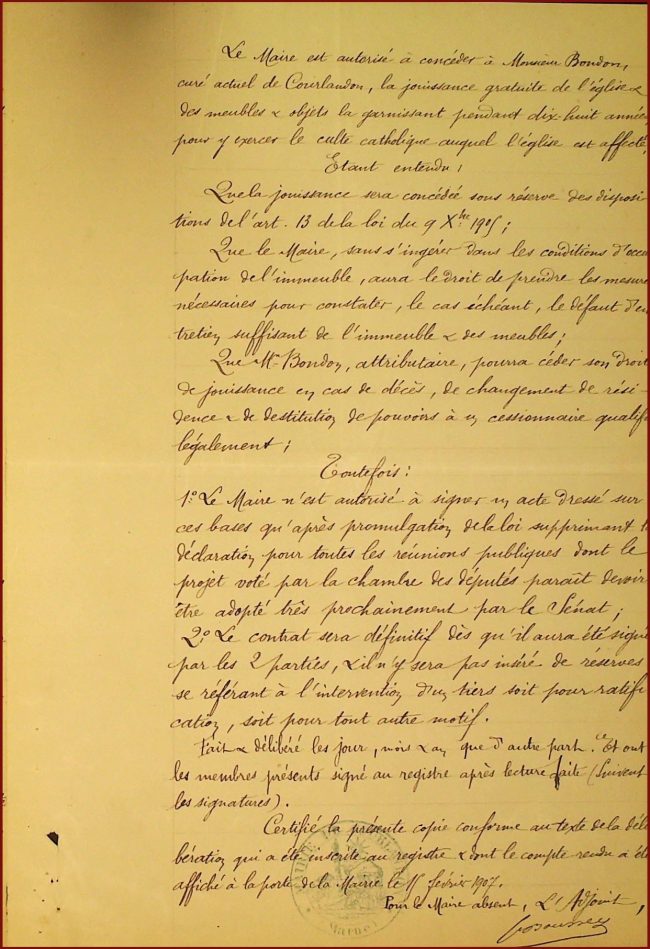 Le Maire est autorisé à concéder à Monsieur Bondon,
curé actuel de Courlandon, la jouissance gratuite de l'église &
des meubles & objets la garnissant pendant dix-huit année
pour y exercer le culte catholique auquel l'église est affecté,
Etant entendu :
Que la jouissance sera concédée sous réserve des disposi-
tions de l'art. 13 de la loi du 9 Xbre 1905 ;
Que le Maire, sans s'ingérer dans les conditions d'occu
pation de l'immeuble, aura le droit de prendre les mesure
nécessaires pour constater, le cas échéant, le défaut d'en
tretien suffisant de l'immeuble & des meubles ;
Que Mr Bondon, attributaire, pourra céder son droit
de jouissance en cas de décès, de changement de rési-
dence & de destitution de pouvoirs à un cessionnaire qualifi
légalement ;
Toutefois :
1º Le Maire n'est autorisé à signer un acte dressé sur
ces bases qu'après promulgation de la loi supprimant l
déclaration pour toutes les réunions publiques dont le
projet voté par la chambre des députés paraît devoir
être adopté très prochainement par le Sénat ;
2º Le contrat sera définitif dès qu'il aura été signé
par les 2 parties, & il n'y sera pas inséré de réserves
se référant à l'intervention d'un tiers soit pour ratifi
cation, soit pour tout autre motif.
Fait & délibéré les jour, mois & an que d'autre part. Et ont
les membres présents signé au registre après lecture faite (Suivent
les signatures).
Certifié la présente copie conforme au texte de la déli
bération qui a été inscrite au registre & dont le compte rendu a été
affiché à la porte de la Mairie le 15 février 1907.
Pour le Maire absent, L'Adjoint,
Marne